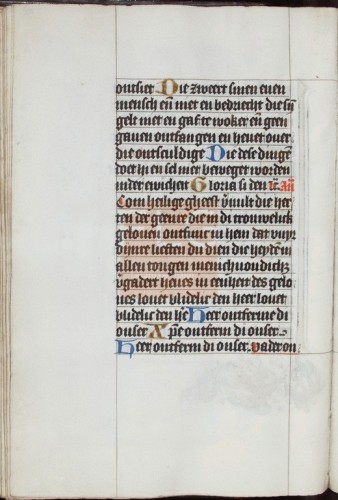 ontsiet Die zweert sinen euen
mensch en̄ niet en bedriecht die sij̄
gelt niet en gaf te woker en̄ geen
gauen ontfangen en heuet ouer
die ontsculdige Die dese dingē
doet hi en sel niet beweget worden
inder ewicheit Gloria si den Añ
Com heilige gheest v̄uult die her
ten der geenre die in di trouwelick
gelouen ontfunc in hem dat vuyr
dijnre lieften du die die heyden in
allen tongen menichuoudich
v̄gadert heues in eenheit des gelo
ues louet blidelic den heer louet
blidelic den Heer ontferme di
onser Xp̄e ontferm di onser
Heer ontferm di onser Vader on